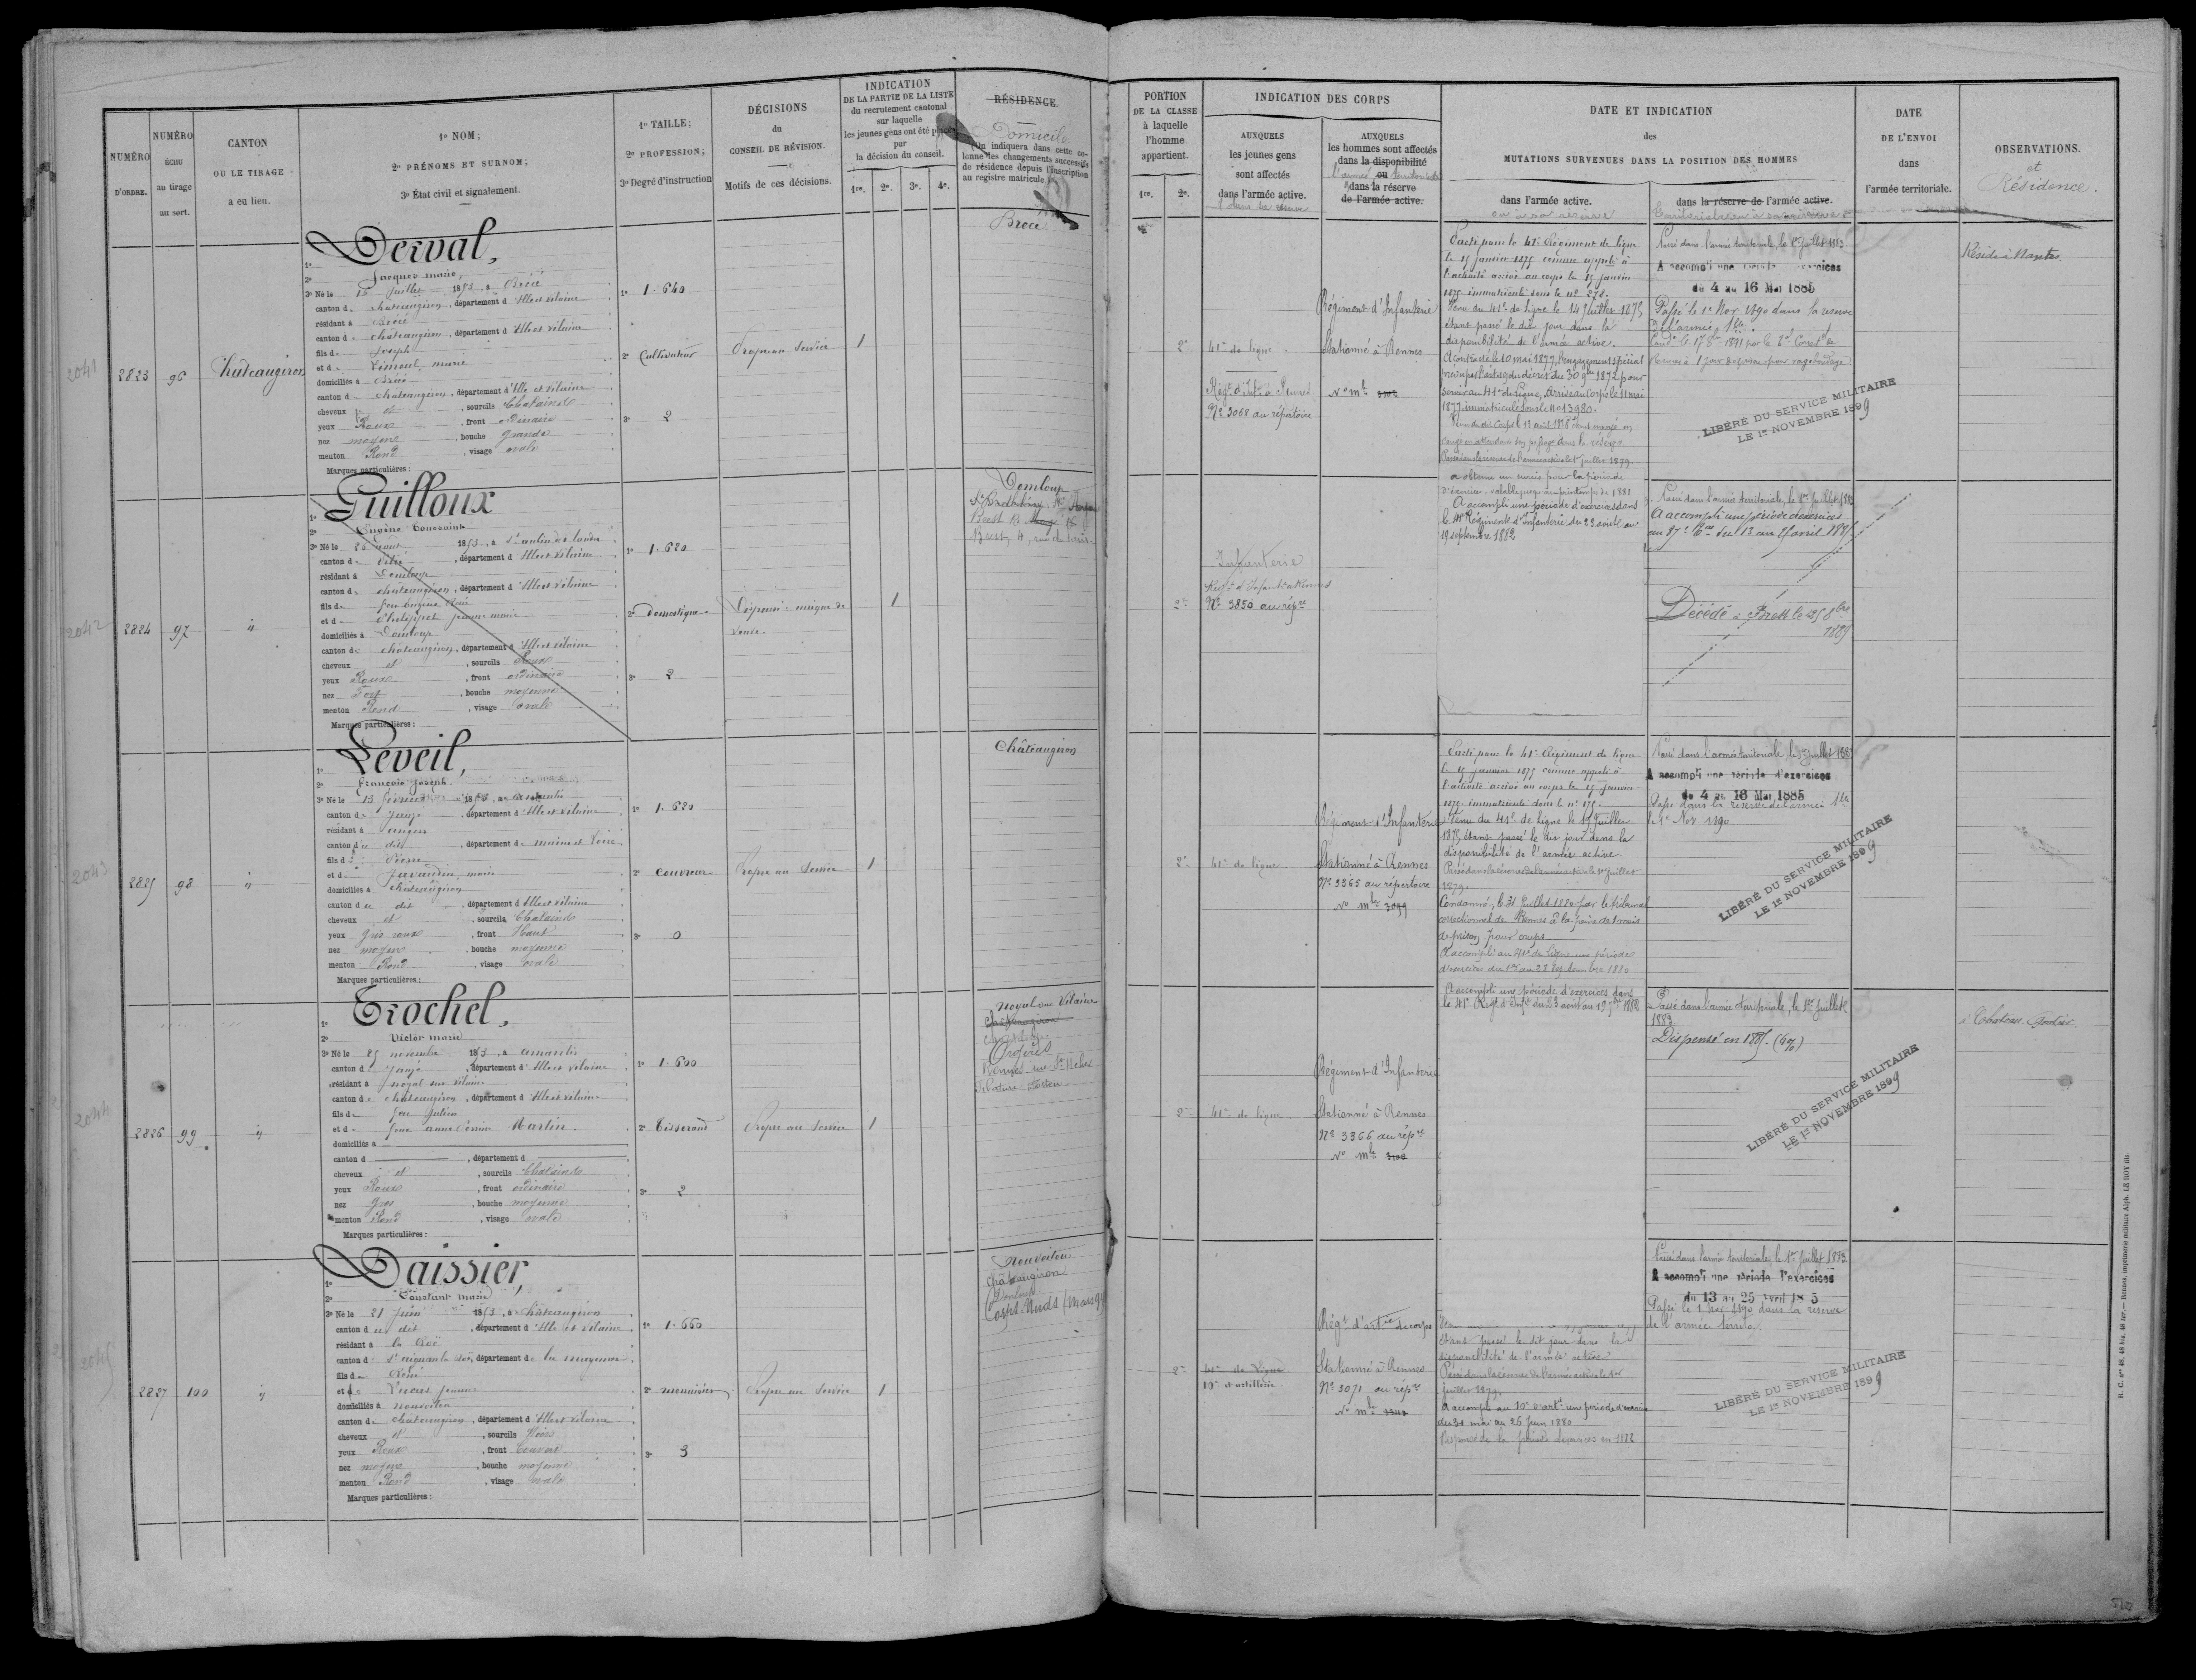 NUMÉRO D'ORDRE.
NUMÉRO ÉCHU au tirage au sort.
CANTON OU LE TIRAGE a eu lieu.
1º NOM;
2º PRÉNOMS ET SURNOM;
3º État civil et signalement.
1º TAILLE;
2º PROFESSION;
3º Degré d'instruction
DÉCISIONS
du
CONSEIL DE RÉVISION.
Motifs de ces décisions.
INDICATION
DE LA PARTIE DE LA LISTE
du recrutement cantonal
sur laquelle
les jeunes gens ont été placés
par
la décision du conseil.
1re. 2e. 3e. 4e.
RÉSIDENCE.
Domicile
(On indiquera dans cette co-
lonne les changements successifs
de résidence depuis l'inscription
au registre matricule.)
2041
2823
96
Châteaugiron
Derval,
Jacques Marie,
3º Né le 16 Juillet 1853, à Brécé
canton de Châteaugiron, département d'Ille et Vilaine
résidant à Brécé
canton de Châteaugiron, département d'Ille et Vilaine
fils de Joseph
et de Marie
domiciliés à Brécé
canton de Châteaugiron, département d'Ille et Vilaine
cheveux et, sourcils Chatains
yeux Roux, front ordinaire
nez moyen, bouche grande
menton Rond, visage ovale
Marques particulières:
1º 1.640
2º Cultivateur
3º 2
Propre au Service
1
Brécé
2042
2824
97
"
Guilloux
Eugène Toussaint
3º Né le août 1853, à St aubin des landes
canton de Vitré, département d'Ille et Vilaine
résidant à Domloup
canton de Châteaugiron, département d'Ille et Vilaine
fils de feu Eugène René
et de Jeanne Marie
domiciliés à Domloup
canton de Châteaugiron, département d'Ille et Vilaine
cheveux et, sourcils Roux
yeux Roux, front ordinaire
nez Fort, bouche moyenne
menton Rond, visage ovale
Marques particulières:
1º 1.620
2º Domestique
3º 2
Dispensé unique de
veuve.
1
Domloup
Brest, 4, rue de
2043
2825
98
"
Leveil,
François Joseph
3º Né le 13 février 1853, à Amanlis
canton de Janzé, département d'Ille et Vilaine
résidant à angers
canton du dit, département de Maine et Loire
fils de Pierre
et de Javaudin, Marie
domiciliés à Châteaugiron
canton du dit, département d'Ille et Vilaine
cheveux et, sourcils Chatains
yeux gris roux, front Haut
nez moyen, bouche moyenne
menton Rond, visage ovale
Marques particulières:
1º 1.620
2º couvreur
3º 0
Propre au Service
1
Châteaugiron
2044
2826
99
"
Trochel,
Victor Marie
3º Né le 25 novembre 1853, à amanlis
canton de Janzé, département d'Ille et Vilaine
résidant à noyal sur Vilaine
canton de Châteaugiron, département d'Ille et Vilaine
fils de feu Julien
et de feue anne Martin.
domiciliés à
canton d , département d
cheveux et, sourcils Chatains
yeux Roux, front ordinaire
nez gros, bouche moyenne
menton Rond, visage ovale
Marques particulières:
1º 1.600
2º Tisserand
3º 2
Propre au Service
1
Noyal sur Vilaine
Châteaugiron
Orgères
2045
2827
100
"
Daissier,
Constant Marie
3º Né le 21 Juin 1853, à Châteaugiron
canton du dit, département d'Ille et Vilaine
résidant à la Roë
canton de St aignan la Roë, département de la Mayenne
fils de René
et de Jeanne
domiciliés à Nouvoitou
canton de Châteaugiron, département d'Ille et Vilaine
cheveux et, sourcils Noirs
yeux Roux, front Couvert
nez moyen, bouche moyenne
menton Rond, visage ovale
Marques particulières:
1º 1.660
2º menuisier
3º 3
Propre au Service
1
Nouvoitou
Châteaugiron
Domloup
Corps-Nuds (Mars 94
PORTION
DE LA CLASSE
à laquelle
l'homme
appartient.
1re. 2e.
INDICATION DES CORPS
AUXQUELS
les jeunes gens
sont affectés
dans l'armée active.
AUXQUELS
les hommes sont affectés
dans la disponibilité
ou
dans la réserve
de l'armée active.
DATE ET INDICATION
des
MUTATIONS SURVENUES DANS LA POSITION DES HOMMES
dans l'armée active.
ou à sa réserve
dans la réserve de l'armée active.
DATE
DE L'ENVOI
dans
l'armée territoriale.
OBSERVATIONS.
et
Résidence.
2e
41e de ligne.
Régt d'Inf. de Rennes
Nº 3068 au répertoire
Régiment d'Infanterie
Stationné à Rennes
Nº mle
Parti pour le 41e Régiment de ligne
le 15 janvier 1875 comme appelé à
l'activité arrivé au corps le 15 janvier
1875 immatriculé sous le nº 278.
Venu du 41e de ligne le 14 Juillet 1875
étant passé le dit jour dans la
disponibilité de l'armée active.
A contracté le 10 mai 1877, l'engagement spécial
prévu par l'art. 19 du décret du 30 9bre 1872 pour
servir au 41e de Ligne. Arrivé au Corps le 11 mai
1877, immatriculé sous le nº 13980.
Passé dans la réserve de l'armée active le 1er juillet 1879.
Passé dans l'armée territoriale, le 1er juillet 1883
A accompli une période d'exercices
du 4 au 16 Mai 1885
Passé le 1er Nov 1890 dans la réserve
De l'armée tle
LIBÉRÉ DU SERVICE MILITAIRE
LE 1er NOVEMBRE 1899
Réside à Nantes.
2e
Infanterie
Régt d'Infanterie Rennes
Nº 3850 au répre
a obtenu un sursis pour la période
d'exercices, valable jusqu'au printemps de 1881
A accompli une période d'exercices dans
le 41e Régiment d'Infanterie du 23 août au
19 septembre 1882
Passé dans l'armée territoriale, le 1er juillet 1883
A accompli une période d'exercices
du 13 au 25 avril 1885
Décédé à Brest le 25 8bre
1885
2e
41e de ligne
Régiment d'Infanterie
Stationné à Rennes
Nº 3365 au répertoire
Nº mle 3099
Parti pour le 41e Régiment de ligne
le 15 janvier 1875 comme appelé à
l'activité arrivé au corps le 15 janvier
1875 immatriculé sous le nº 175.
Venu du 41e de Ligne le 15 Juillet
1875 étant passé le dit jour dans la
disponibilité de l'armée active.
Passé dans la réserve de l'armée active le 1er Juillet
1879.
Condamné, le 31 Juillet 1880 par le tribunal
correctionnel de Rennes à la peine de 1 mois
de prison pour coups
A accompli au 41e de Ligne une période
d'exercices du 1er au 28 Septembre 1880
Passé dans l'armée territoriale, le 1er juillet 1883
A accompli une période d'exercices
du 4 au 16 Mai 1885
Passé dans la réserve de l'armée tle
le 1er Nov 1890
LIBÉRÉ DU SERVICE MILITAIRE
LE 1er NOVEMBRE 1899
2e
41e de ligne.
Régiment d'Infanterie
Stationné à Rennes
Nº 3366 au répre
Nº mle 3100
A accompli une période d'exercices dans
le 41e Régt d'Infie du 23 août au 19 7bre 1882
Passé dans l'armée territoriale, le 1er Juillet
1883
Dispensé en 1885. (6%)
LIBÉRÉ DU SERVICE MILITAIRE
LE 1er NOVEMBRE 1899
à Chateau-Gontier.
2e
41e de Ligne
10e d'artillerie
Régt d'artie
Stationné à Rennes
Nº 3071 au répre
Nº mle
étant passé le dit jour dans la
disponibilité de l'armée active
Passé dans la réserve de l'armée active le 1er
juillet 1879.
A accompli au 10e d'artie une période d'exercices
du 31 mai au 26 Juin 1880
Dispensé de la période d'exercices en 1882
Passé dans l'armée territoriale, le 1er Juillet 1883.
A accompli une période d'exercices
du 13 au 25 Avril 1885
Passé le 1 Nov. 1890 dans la réserve
de l'armée territo.
LIBÉRÉ DU SERVICE MILITAIRE
LE 1er NOVEMBRE 1899
R. C. Nos 48, 48 bis, 48 ter. — Rennes, imprimerie militaire Alph. LE ROY fils